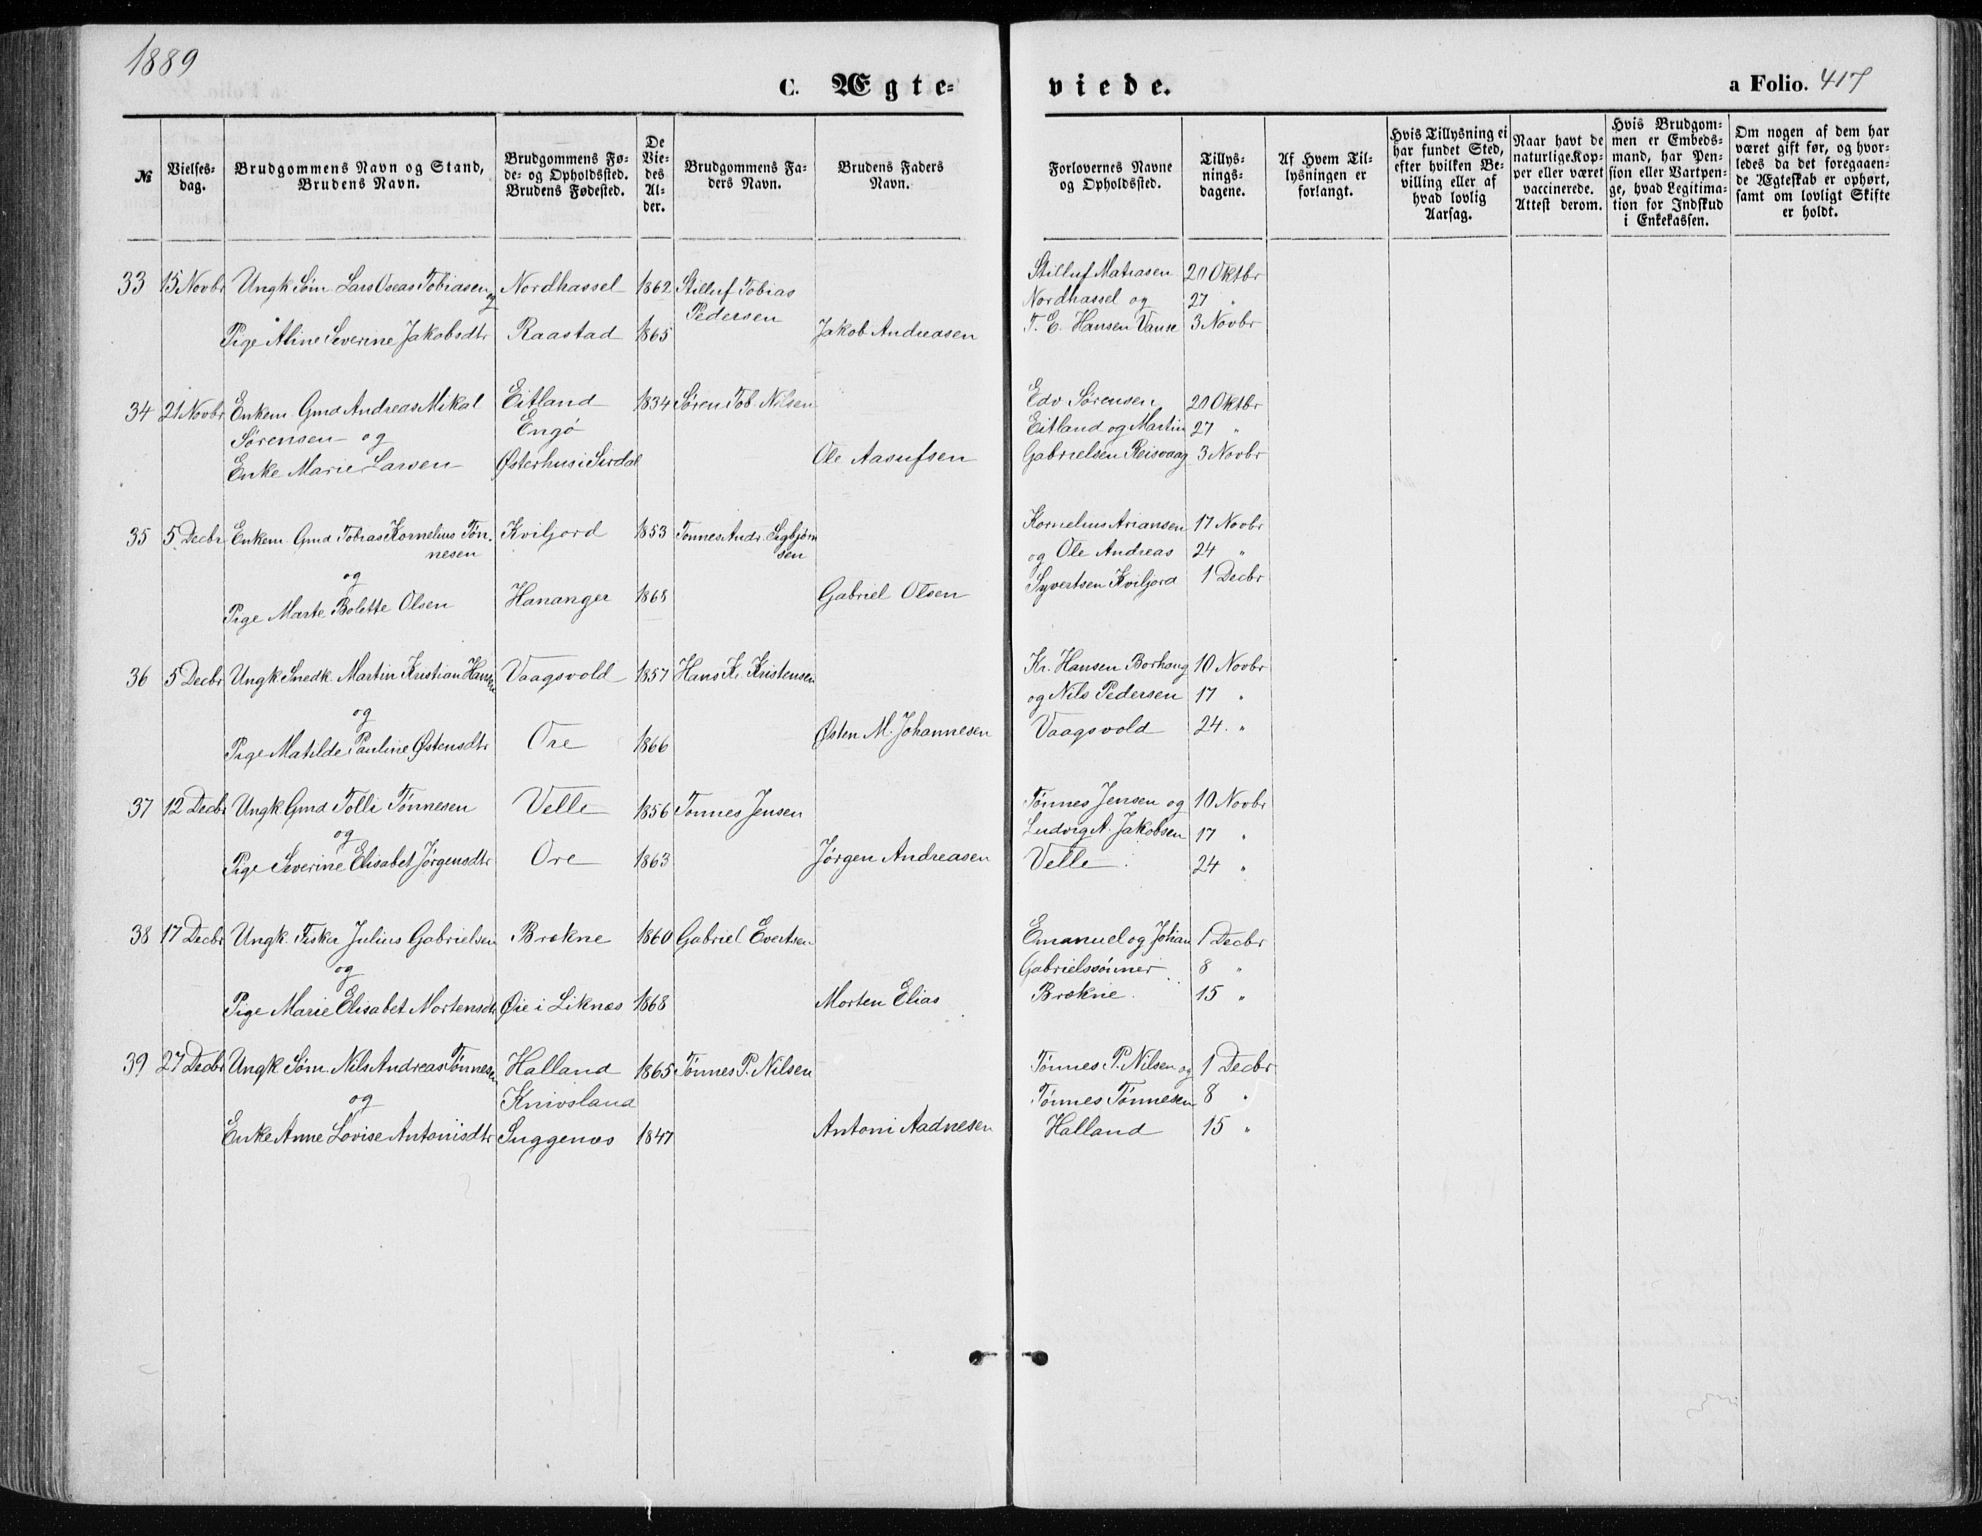 1889
C. Ægte-
viede.
a Folio. 417
№
Vielses-
dag.
Brudgommens Navn og Stand,
Brudens Navn.
Brudgommens Fø-
de- og Opholdssted.
Brudens Fødested.
De
Vie-
des
Al-
der.
Brudgommens Fa-
ders Navn.
Brudens Faders
Navn.
Forlovernes Navne
og Opholdssted.
Tillys-
nings-
dagene.
Af Hvem Til-
lysningen er
forlangt.
Hvis Tillysning ei
har fundet Sted,
efter hvilken Be-
villing eller af
hvad lovlig
Aarsag.
Naar havt de
naturlige Kop-
per eller været
vaccinerede.
Attest derom.
Hvis Brudgom-
men er Embeds-
mand, har Pen-
sion eller Vartpen-
ge, hvad Legitima-
tion for Indskud
i Enkekassen.
Om nogen af dem har
været gift før, og hvor-
ledes da det foregaaen-
de Ægteskab er ophørt,
samt om lovligt Skifte
er holdt.
33 15 Novbr Ungk Søm Lars Oseas Tobiasen og Nordhassel 1862 Stilluf Tobias
Pedersen
Pige Aline Severine Jakobsdtr Raastad 1865 Jakob Andreasen
Stilluf Matiasen 20 Oktbr
Nordhassel og 27 "
T. E. Hansen Vanse 3 Novbr
34 21 Novbr Enkem Gmd Andreas Mikal Eitland 1834 Søren Tob. Nilsen
Sørensen og Engø
Enke Marie Larsen Østerhus i Sirdal Ole Aasufsen
Edv Sørensen 20 Oktbr
Eitland og Martin 27 "
Gabrielsen Reisvaag 3 Novbr
35 5 Decbr Enkem Gmd Tobias Kornelius Tøn- Kviljord 1853 Tønnes Andr. Sigbjørn
nesen sen
og
Pige Marte Bolette Olsen Hananger 1868 Gabriel Olsen
Kornelius Ariansen 17 Novbr
og Ole Andreas 24 "
Syvertsen Kviljord 1 Decbr
36 5 Decbr Ungk Snedk. Martin Kristian Hansen Vaagsvold 1857 Hans K. Kristensen
og
Pige Matilde Pauline Østensdtr Ore 1866 Østen M. Johannesen
Kr. Hansen Borhaug 10 Novbr
og Nils Pedersen 17 "
Vaagsvold 24 "
37 12 Decbr Ungk Gmd Tolli Tønnesen Velle 1856 Tønnes Jensen
og
Pige Severine Elisabet Jørgensdtr Ore 1863 Jørgen Andreasen
Tønnes Jensen og 10 Novbr
Ludvig A. Jakobsen 17 "
Velle 24 "
38 17 Decbr Ungk. Fisker Julius Gabrielsen Brekne 1860 Gabriel Evertsen
og
Pige Marie Elisabet Mortensdtr Øie i Liknæs 1868 Morten Elias
Emanuel og Johan 1 Decbr
Gabrielssønner 8 "
Brekne 15 "
39 27 Decbr Ungk Søm Nils Andreas Tønnesen Halland 1865 Tønnes P. Nilsen
og Knivsland
Enke Anne Lovise Antonisdtr Suggenæs 1847 Antoni Aadnesen
Tønnes P. Nilsen og 1 Decbr
Tønnes Tønnesen 8 "
Halland 15 "